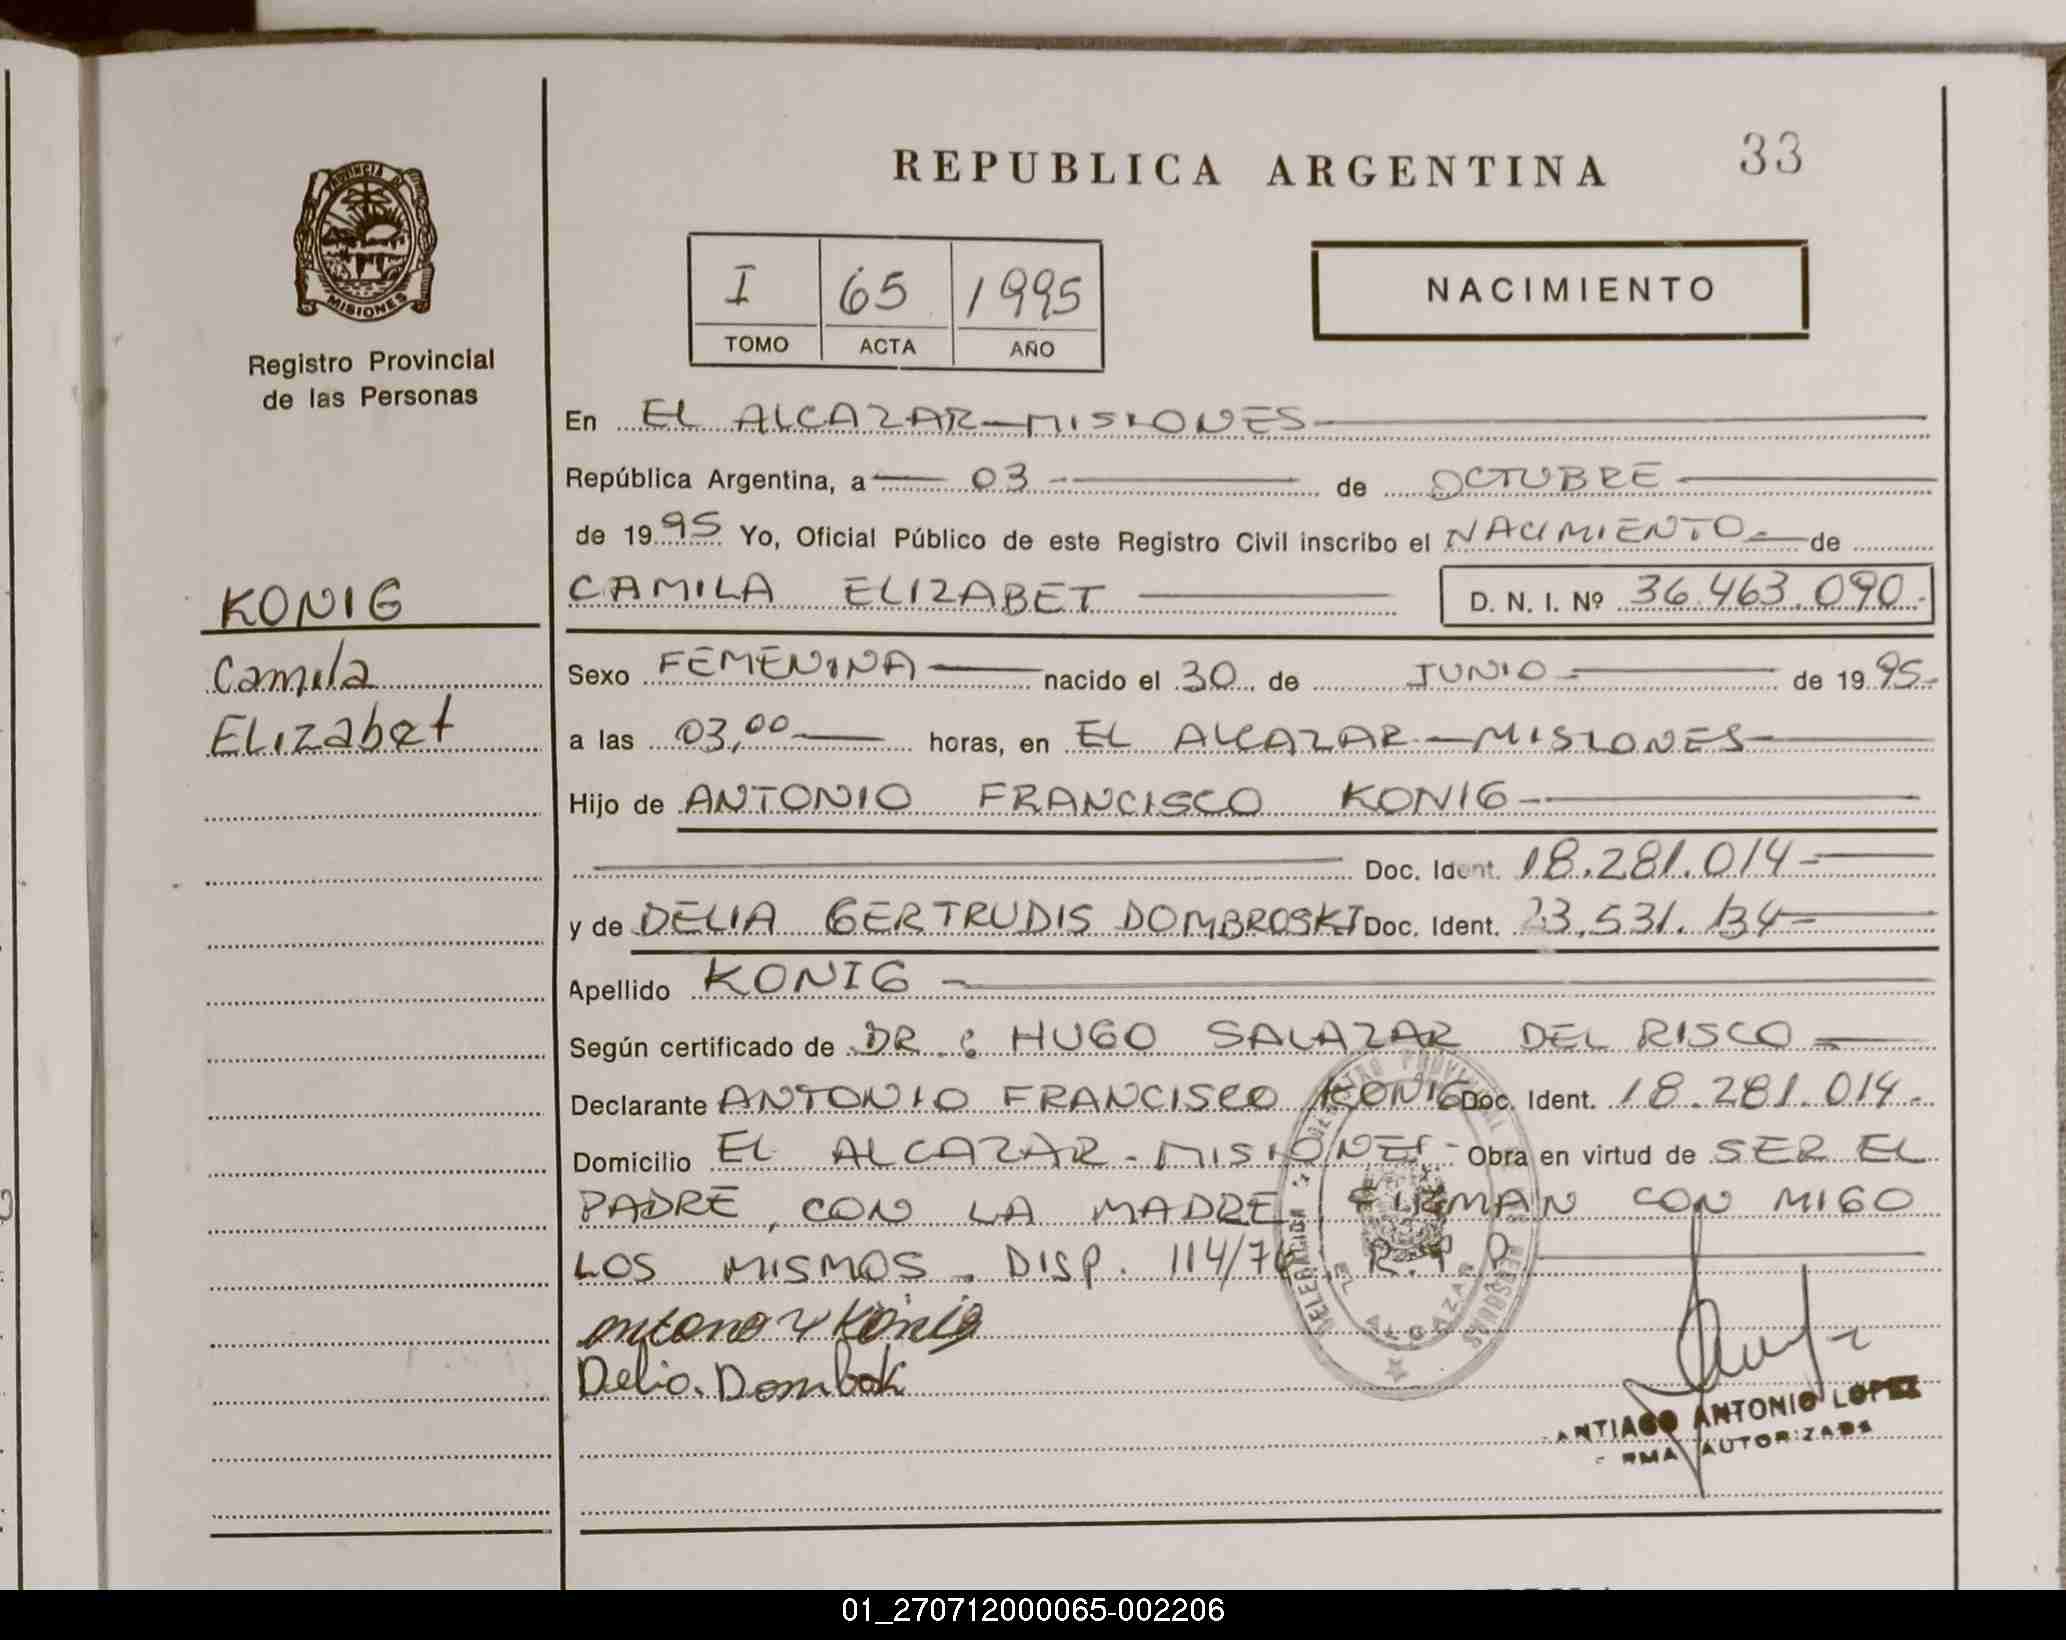 REPUBLICA ARGENTINA
33
PROVINCIA DE
MISIONES
Registro Provincial
de las Personas
I 65 1995
TOMO ACTA AÑO
NACIMIENTO
En EL ALCAZAR—MISIONES
República Argentina, a 03 de OCTUBRE
de 1995 Yo, Oficial Público de este Registro Civil inscribo el NACIMIENTO de
KONIG
CAMILA ELIZABET D. N. I. Nº 36.463.090.
Camila
Sexo FEMENINA nacido el 30 de JUNIO de 1995
Elizabet
a las 03,00 horas, en EL ALCAZAR—MISIONES
Hijo de ANTONIO FRANCISCO KONIG
Doc. Ident. 18.281.014
y de DELIA GERTRUDIS DOMBROSKI Doc. Ident. 23.531.134
Apellido KONIG
Según certificado de DR: HUGO SALAZAR DEL RISCO
Declarante ANTONIO FRANCISCO KONIG Doc. Ident. 18.281.014.
Domicilio EL ALCAZAR - MISIONES - Obra en virtud de SER EL
PADRE, CON LA MADRE FIRMAN CON MIGO
LOS MISMOS. DISP. 114/76 R.P.P.
DELEGACION EL ALCAZAR
REGISTRO PROVINCIAL DE PERSONAS
König
Delia.
ANTIAGO ANTONIO LOPEZ
RMA AUTORIZADA
01_270712000065-002206